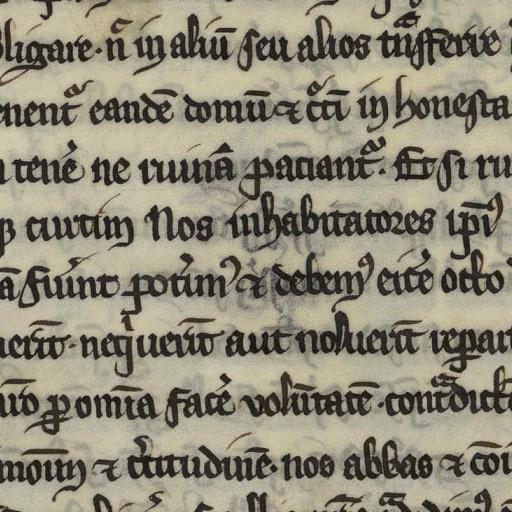 ligare · nᷓ in aliū seu alios tnᷓsferre
enentᷓ eandē domū ⁊ cᷓtī in honesta
teñe ne ruinā paciantᷓ. Et si ru
curtim Nos inhabitatores ip̄iꝰ
ā fuīnt potim̄ꝰ ⁊ debemꝰ eicē̄ octo
uerīt · neqͥuerīt aut noluerīt repar
ꝑ omīa facē̄ volūtatē · contᷓdict
moīm ⁊ c̄titudinē · nos abbas ⁊ cōi